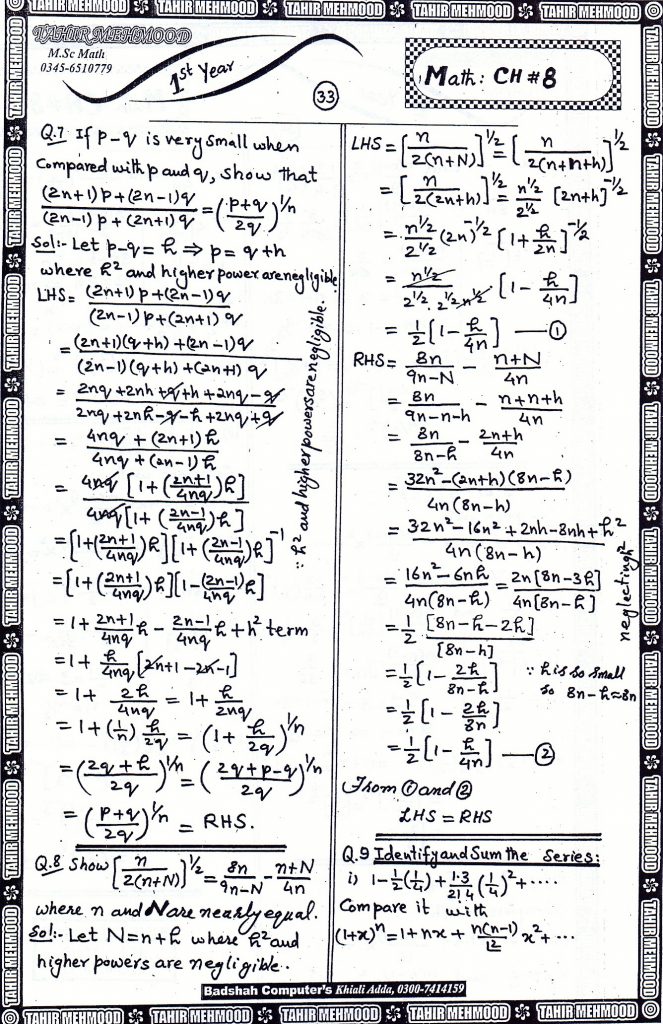 TAHIR MEHMOOD TAHIR MEHMOOD TAHIR MEHMOOD TAHIR MEHMOOD TAHIR MEHMOOD
TAHIR MEHMOOD
M.Sc Math
0345-6510779
1st Year
33
Math: CH #8
Q.7 If p-q is very small when
Compared with p and q, show that
((2n+1)p+(2n-1)q)/((2n-1)p+(2n+1)q) = ((p+q)/2q)^(1/n)
Sol:- Let p-q = h ⇒ p = q+h
where h² and higher power are negligible
LHS = ((2n+1)p+(2n-1)q)/((2n-1)p+(2n+1)q)
= ((2n+1)(q+h)+(2n-1)q)/((2n-1)(q+h)+(2n+1)q)
= (2nq+2nh+q+h+2nq-q)/(2nq+2nh-q-h+2nq+q)
= (4nq+(2n+1)h)/(4nq+(2n-1)h)
= 4nq[1+((2n+1)/4nq)h]/4nq[1+((2n-1)/4nq)h]
= [1+((2n+1)/4nq)h][1+((2n-1)/4nq)h]^-1
= [1+((2n+1)/4nq)h][1-((2n-1)/4nq)h]
= 1+(2n+1)/4nq h - (2n-1)/4nq h + h² term
= 1+h/4nq [2n+1-2n-1]
= 1+2h/4nq = 1+h/2nq
= 1+(1/n) h/2q = (1+h/2q)^(1/n)
= ((2q+h)/2q)^(1/n) = ((2q+p-q)/2q)^(1/n)
= ((p+q)/2q)^(1/n) = RHS.
∵ h² and higher powers are negligible.
Q.8 Show [n/2(n+N)]^(1/2) = 8n/(9n-N) - (n+N)/4n
where n and N are nearly equal.
Sol:- Let N=n+h where h² and
higher powers are negligible..
LHS = [n/2(n+N)]^(1/2) = [n/2(n+n+h)]^(1/2)
= [n/2(2n+h)]^(1/2) = n^(1/2)/2^(1/2) [2n+h]^(-1/2)
= n^(1/2)/2^(1/2) (2n)^(-1/2) [1+h/2n]^(-1/2)
= n^(1/2)/(2^(1/2).2^(1/2)n^(1/2)) [1-h/4n]
= 1/2[1-h/4n] — ①
RHS = 8n/(9n-N) - (n+N)/4n
= 8n/(9n-n-h) - (n+n+h)/4n
= 8n/(8n-h) - (2n+h)/4n
= (32n²-(2n+h)(8n-h))/4n(8n-h)
= (32n²-16n²+2nh-8nh+h²)/4n(8n-h)
= (16n²-6nh)/4n(8n-h) = 2n[8n-3h]/4n[8n-h]
= 1/2 [8n-h-2h]/[8n-h]
= 1/2[1-2h/(8n-h)] ∵ h is so small
so 8n-h≈8n
= 1/2[1-2h/8n]
= 1/2[1-h/4n] — ②
neglecting h²
From ① and ②
LHS = RHS
Q.9 Identify and Sum the Series:
i) 1-1/2(1/4)+1·3/2!4(1/4)²+····
Compare it with
(1+x)^n = 1+nx+n(n-1)/|2 x²+···
Badshah Computer's Khiali Adda, 0300-7414159
TAHIR MEHMOOD TAHIR MEHMOOD TAHIR MEHMOOD TAHIR MEHMOOD TAHIR MEHMOOD